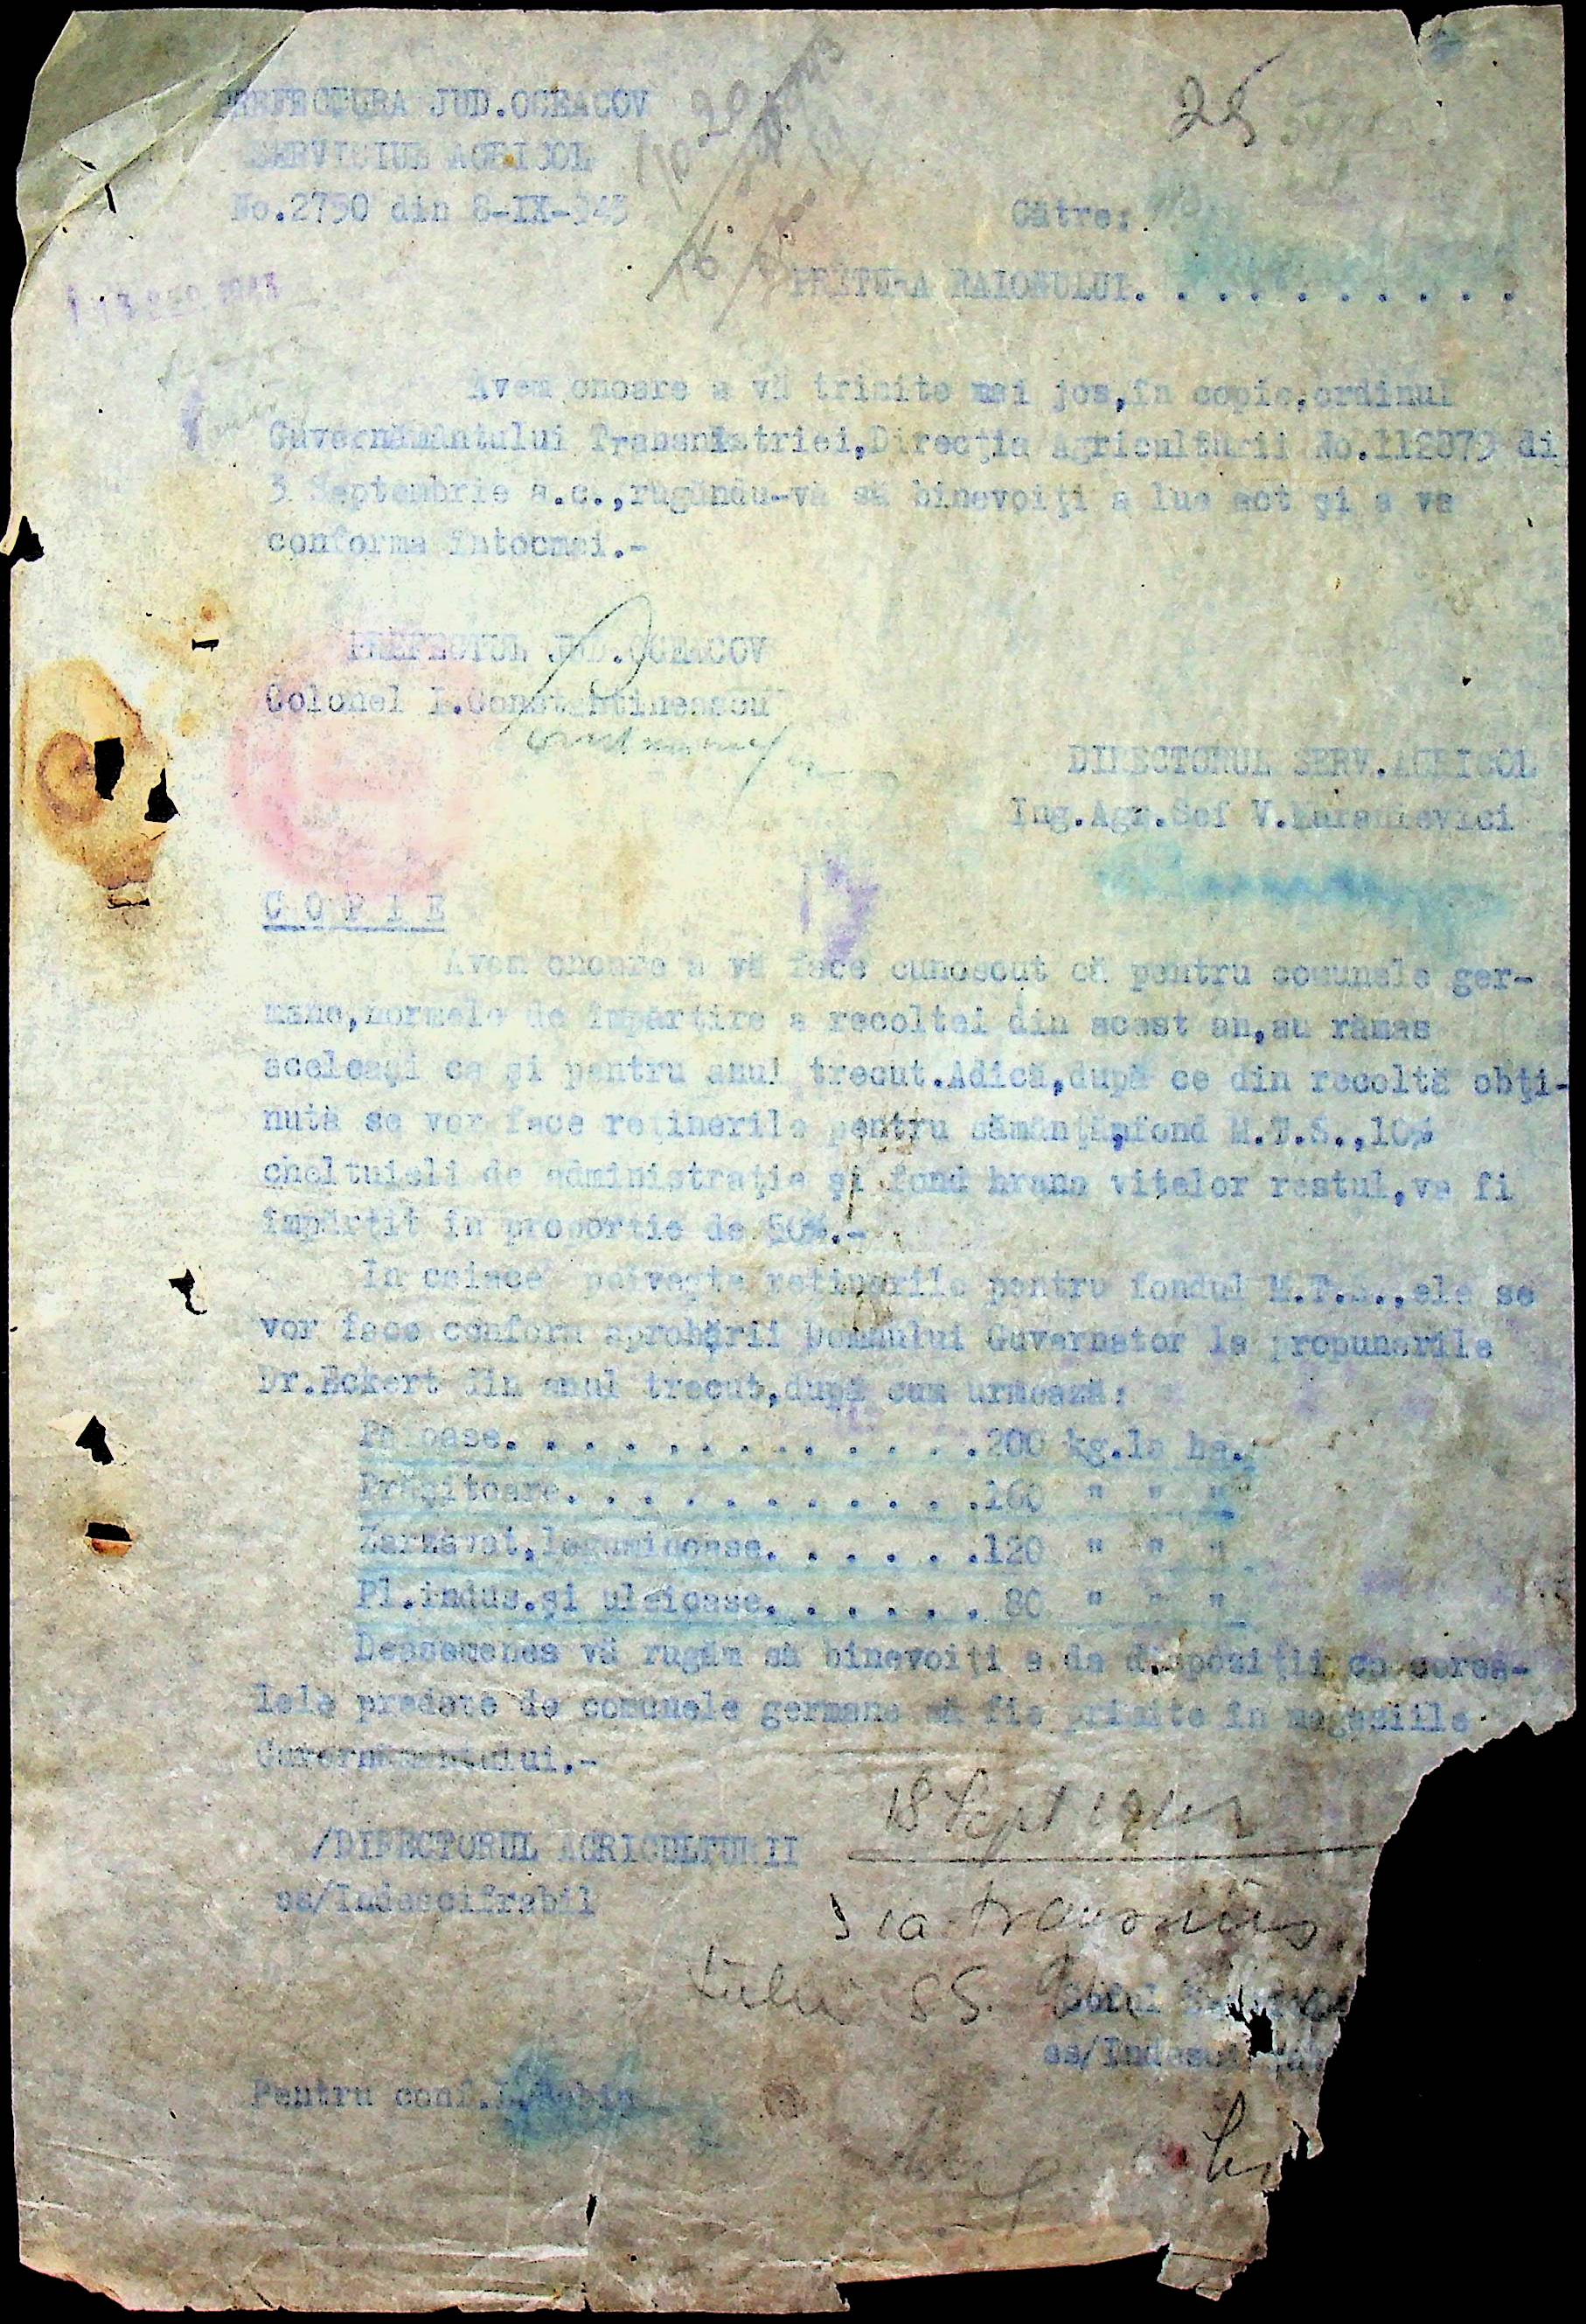 PREFECTURA JUD.OCEACOV
SERVICIUL AGRICOL
No.2750 din 8-IX-943
25
Către:
PRETURA RAIONULUI. . . . . . . . . .
Avem onoare a vă trimite mai jos,în copie,ordinul
Guvernământului Transnistriei,Direcţia Agriculturii No.112079 di
3 Septembrie a.c.,rugându-vă să binevoiţi a lua act şi a vă
conforma întocmai.-
PREFECTUL JUD.OCEACOV
Colonel I.Constantinescu
DIRECTORUL SERV.AGRICOL
Ing.Agr.Sef V.
C O P I E
Avem onoare a vă face cunoscut că pentru comunele ger-
mane,normele de împărţire a recoltei din acest an,au rămas
aceleaşi ca şi pentru anul trecut.Adică,după ce din recoltă obţi-
nută se vor face reţinerile pentru sămânţă,fond M.T.S.,10%
cheltuieli de administraţie şi fond hrana vitelor restul,va fi
împărţit în proporţie de 50%.-
In ceiace priveşte reţinerile pentru fondul M.T.S.,ele se
vor face conform aprobării Domnului Guvernator la propunerile
Dr.Eckert din anul trecut,după cum urmează:
Păioase. . . . . . . . . . . . .200 kg.la ha.
Prăşitoare. . . . . . . . . . .160 " " "
Zarzavat,leguminoase. . . . . .120 " " "
Pl.indus.şi uleioase. . . . . . 80 " " "
Deasemenea vă rugăm să binevoiţi a da dispoziţii ca cerea-
lele predate de comunele germane să fie primite în magaziile
Guvernământului.-
18 Sept 194
/DIRECTORUL AGRICULTURII
ss/Indescifrabil
S'a transmis
SS.
ss/Indescifrabil
Pentru conf.